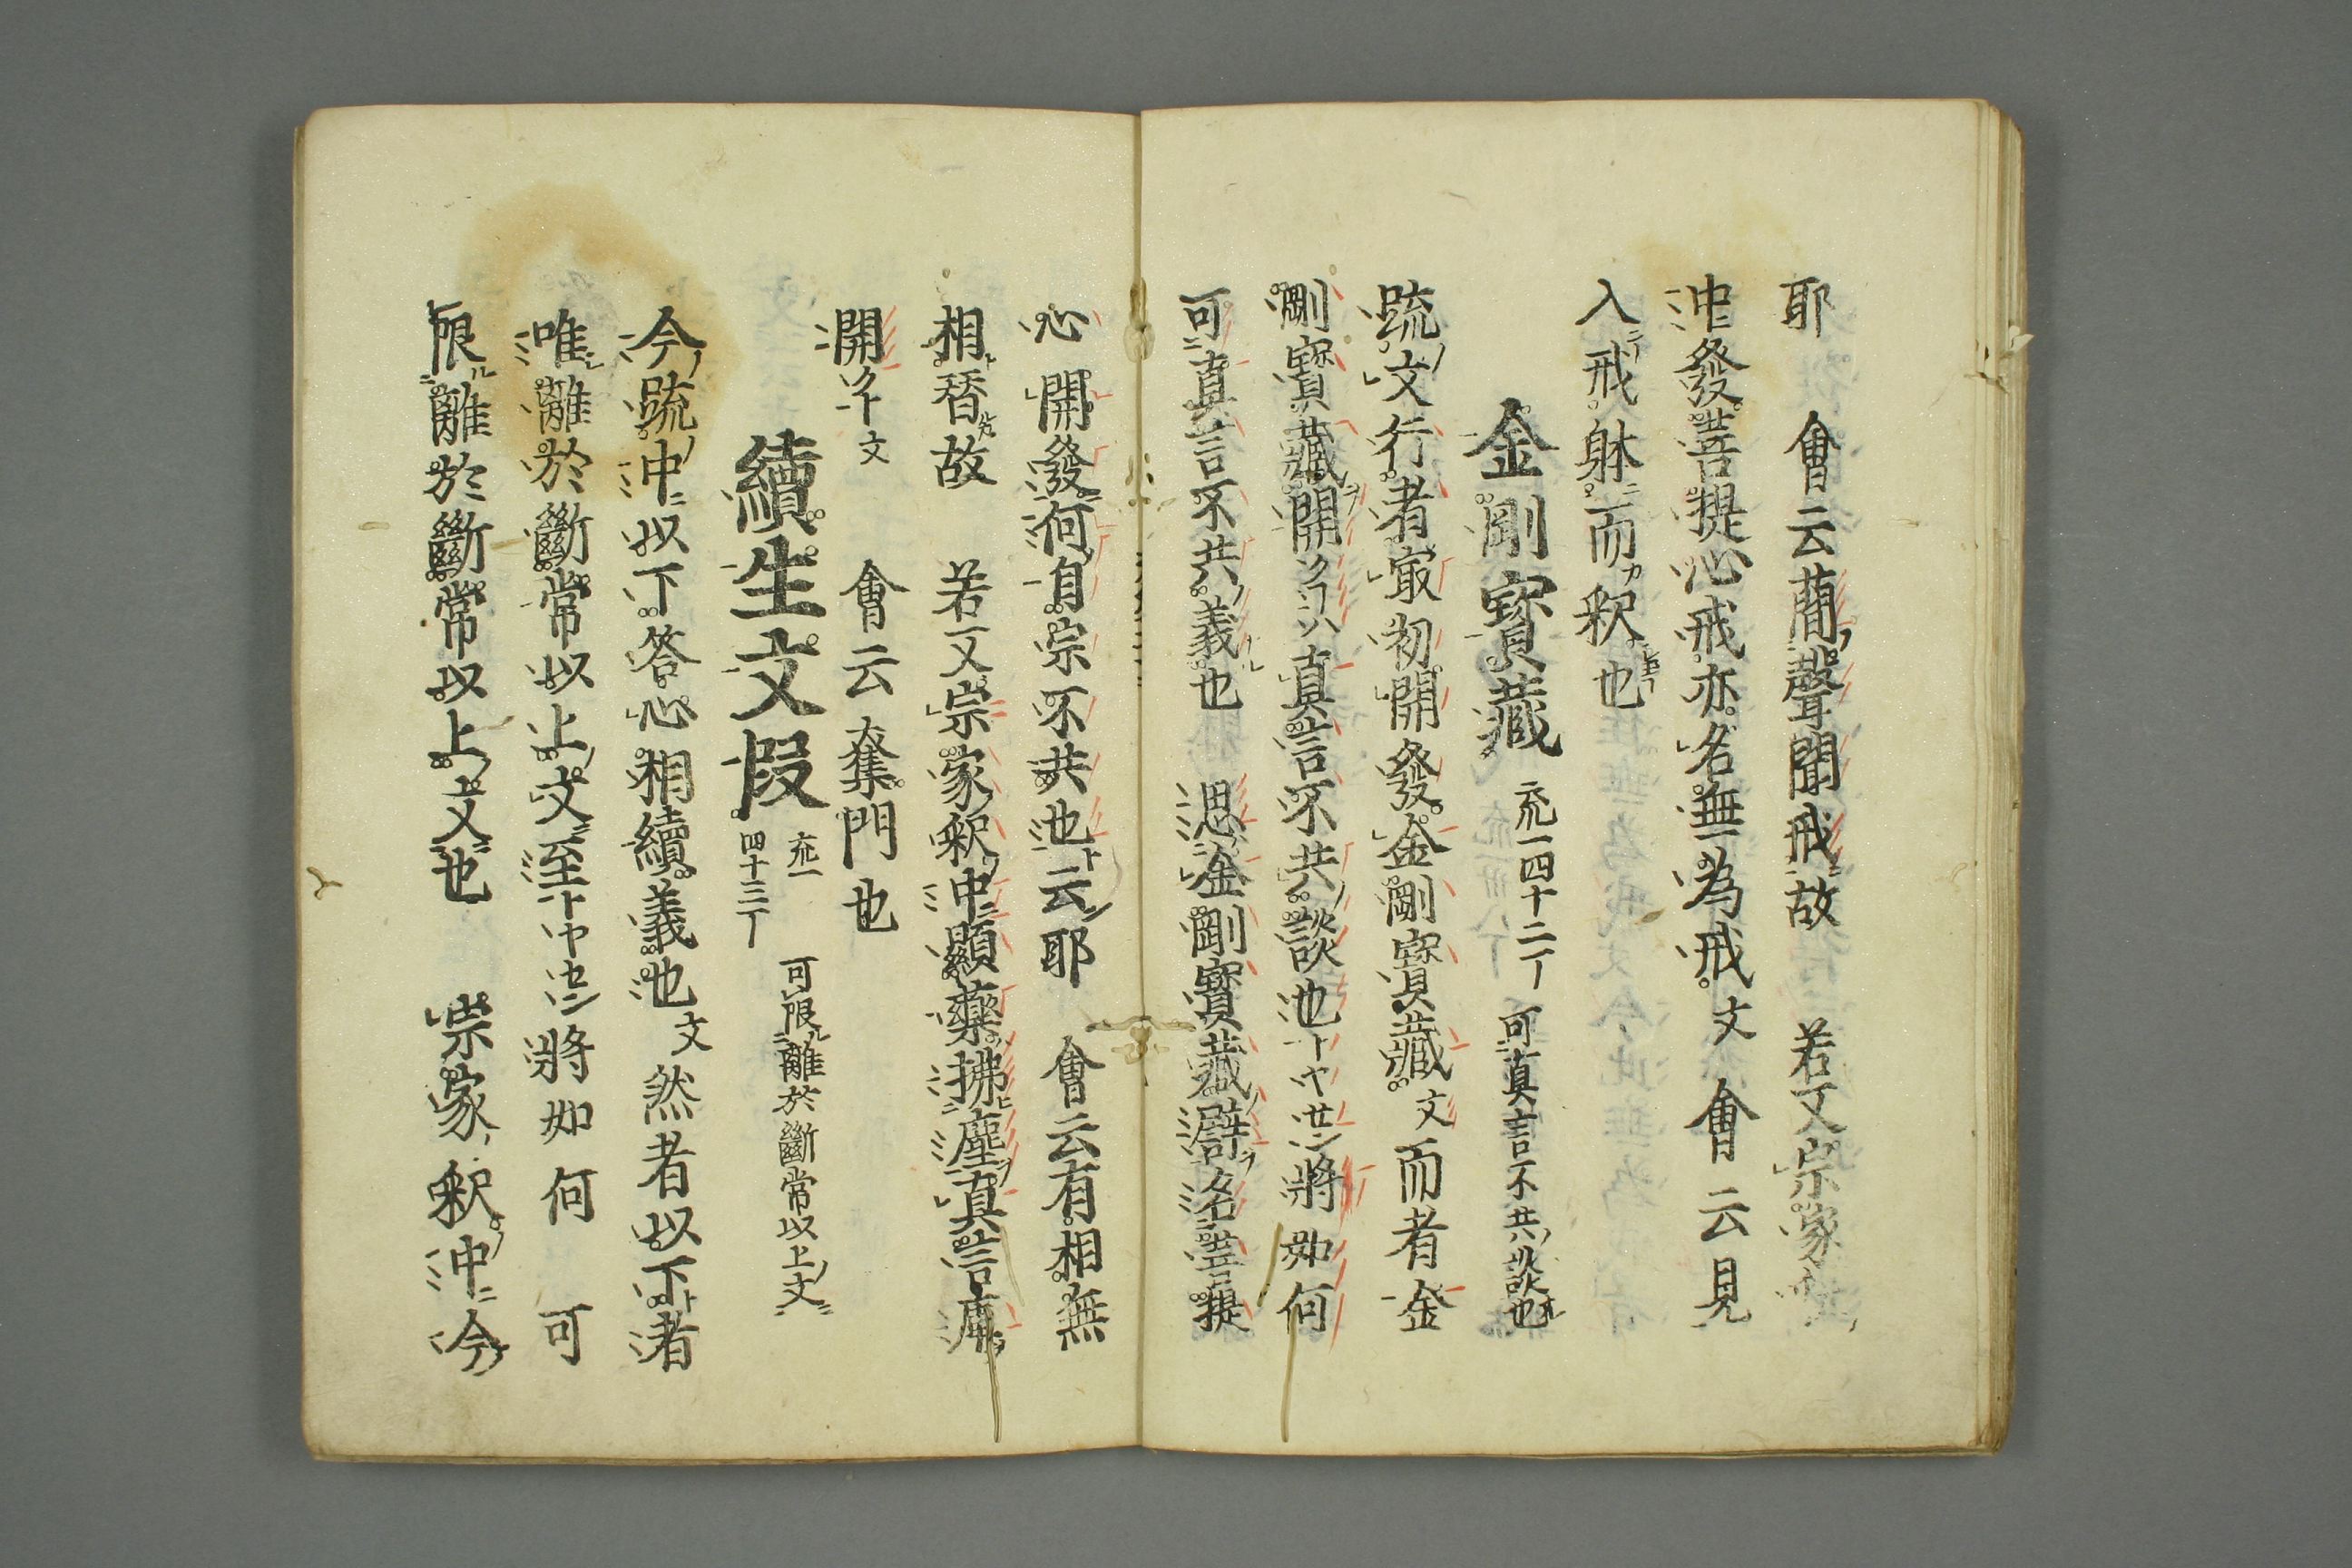 耶 會云簡聲聞戒故 若又宗家
中發菩提心戒亦名無為戒文 會云見
入戒躰而釈也
金剛寳藏 一四十二丁 可真言不共談也
疏文行者最初開發金剛寳藏文 而者金
剛寳藏開 真言不共談也 將如何
可真言不共義也 思金剛寳藏 名菩提
心 開發何自宗不共也云耶 會云有相無
相替故 若又宗家釈中顯藥拂塵真言庫
開 文 會云奪門也
續生文叚 四十三丁 可限離於斷常以上文
今疏中以下答心相續義也文 然者以下者
唯離於斷常以上文至 將如何 可
限離於斷常以上文也 宗家釈中今